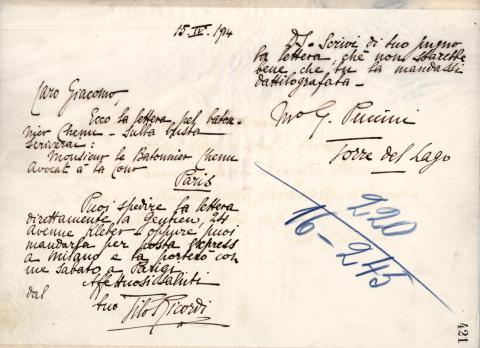 15 IV. 914
Caro Giacomo,
Ecco la lettera pel baton-
nier Chenu - sulla busta
scriverai:
Monsieur le Batonnier Chenu
Avocat à la Cour
Paris
Puoi spedire la lettera
direttamente a Gentien, 24
Avenue Kleber - oppure puoi
mandarla per posta express
a Milano e la porterò con
me sabato a Parigi.
Affettuosi saluti
dal
tuo Tito Ricordi
P.S. - Scrivi di tuo pugno
la lettera, chè non starebbe
bene che tu la mandassi
dattilografata -
Mo G. Puccini
Torre del Lago
220
16 - 245
421